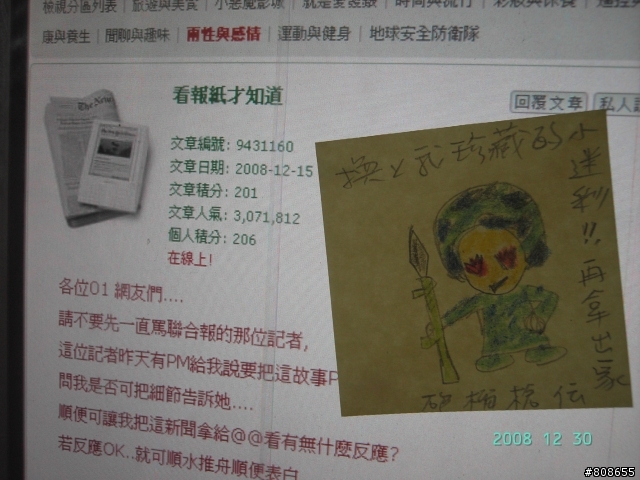 檢視分區列表 | 旅遊與美食 | 小惡魔影城 | 就是愛發爺 | 時尚與流行 | 彩妝與保養 |
康與養生 | 閒聊與趣味 | 兩性與感情 | 運動與健身 | 地球安全防衛隊
看報紙才知道
回覆文章 私人訊
The New
文章編號: 9431160
文章日期: 2008-12-15
文章積分: 201
文章人氣: 3,071,812
個人積分: 206
在線上!
各位01 網友們....
請不要先一直罵聯合報的那位記者,
這位記者昨天有PM給我說要把這故事P
問我是否可把細節告訴她....
順便可讓我把這新聞拿給@@看有無什麼反應?
若反應OK..就可順水推舟順便表白
換上我珍藏的小
迷彩!!再拿出一家
2008 12 30
#808655